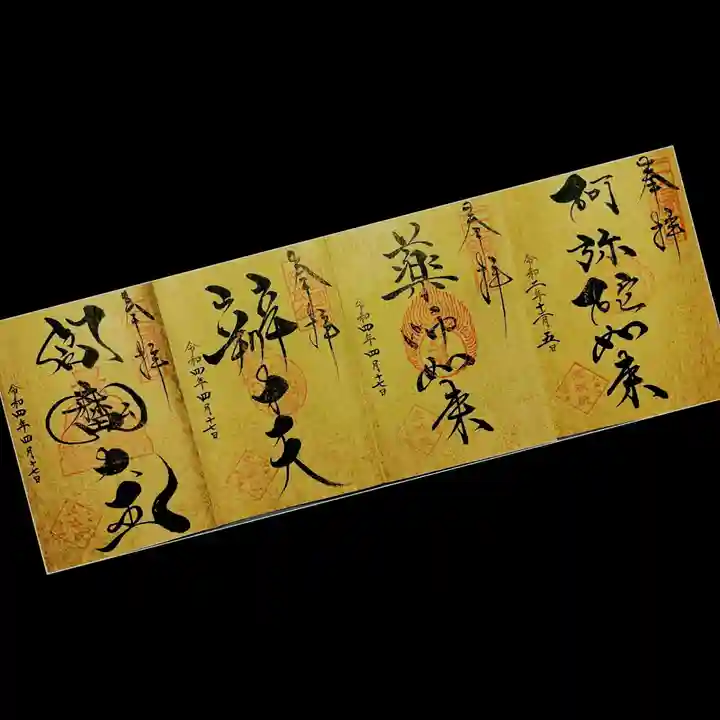 奉拝
阿弥陀如来
令和二年十一月五日
奉拝
薬師如来
令和四年四月十七日
奉拝
辨才天
令和四年四月十七日
奉拝
閻魔大王
令和四年四月十七日